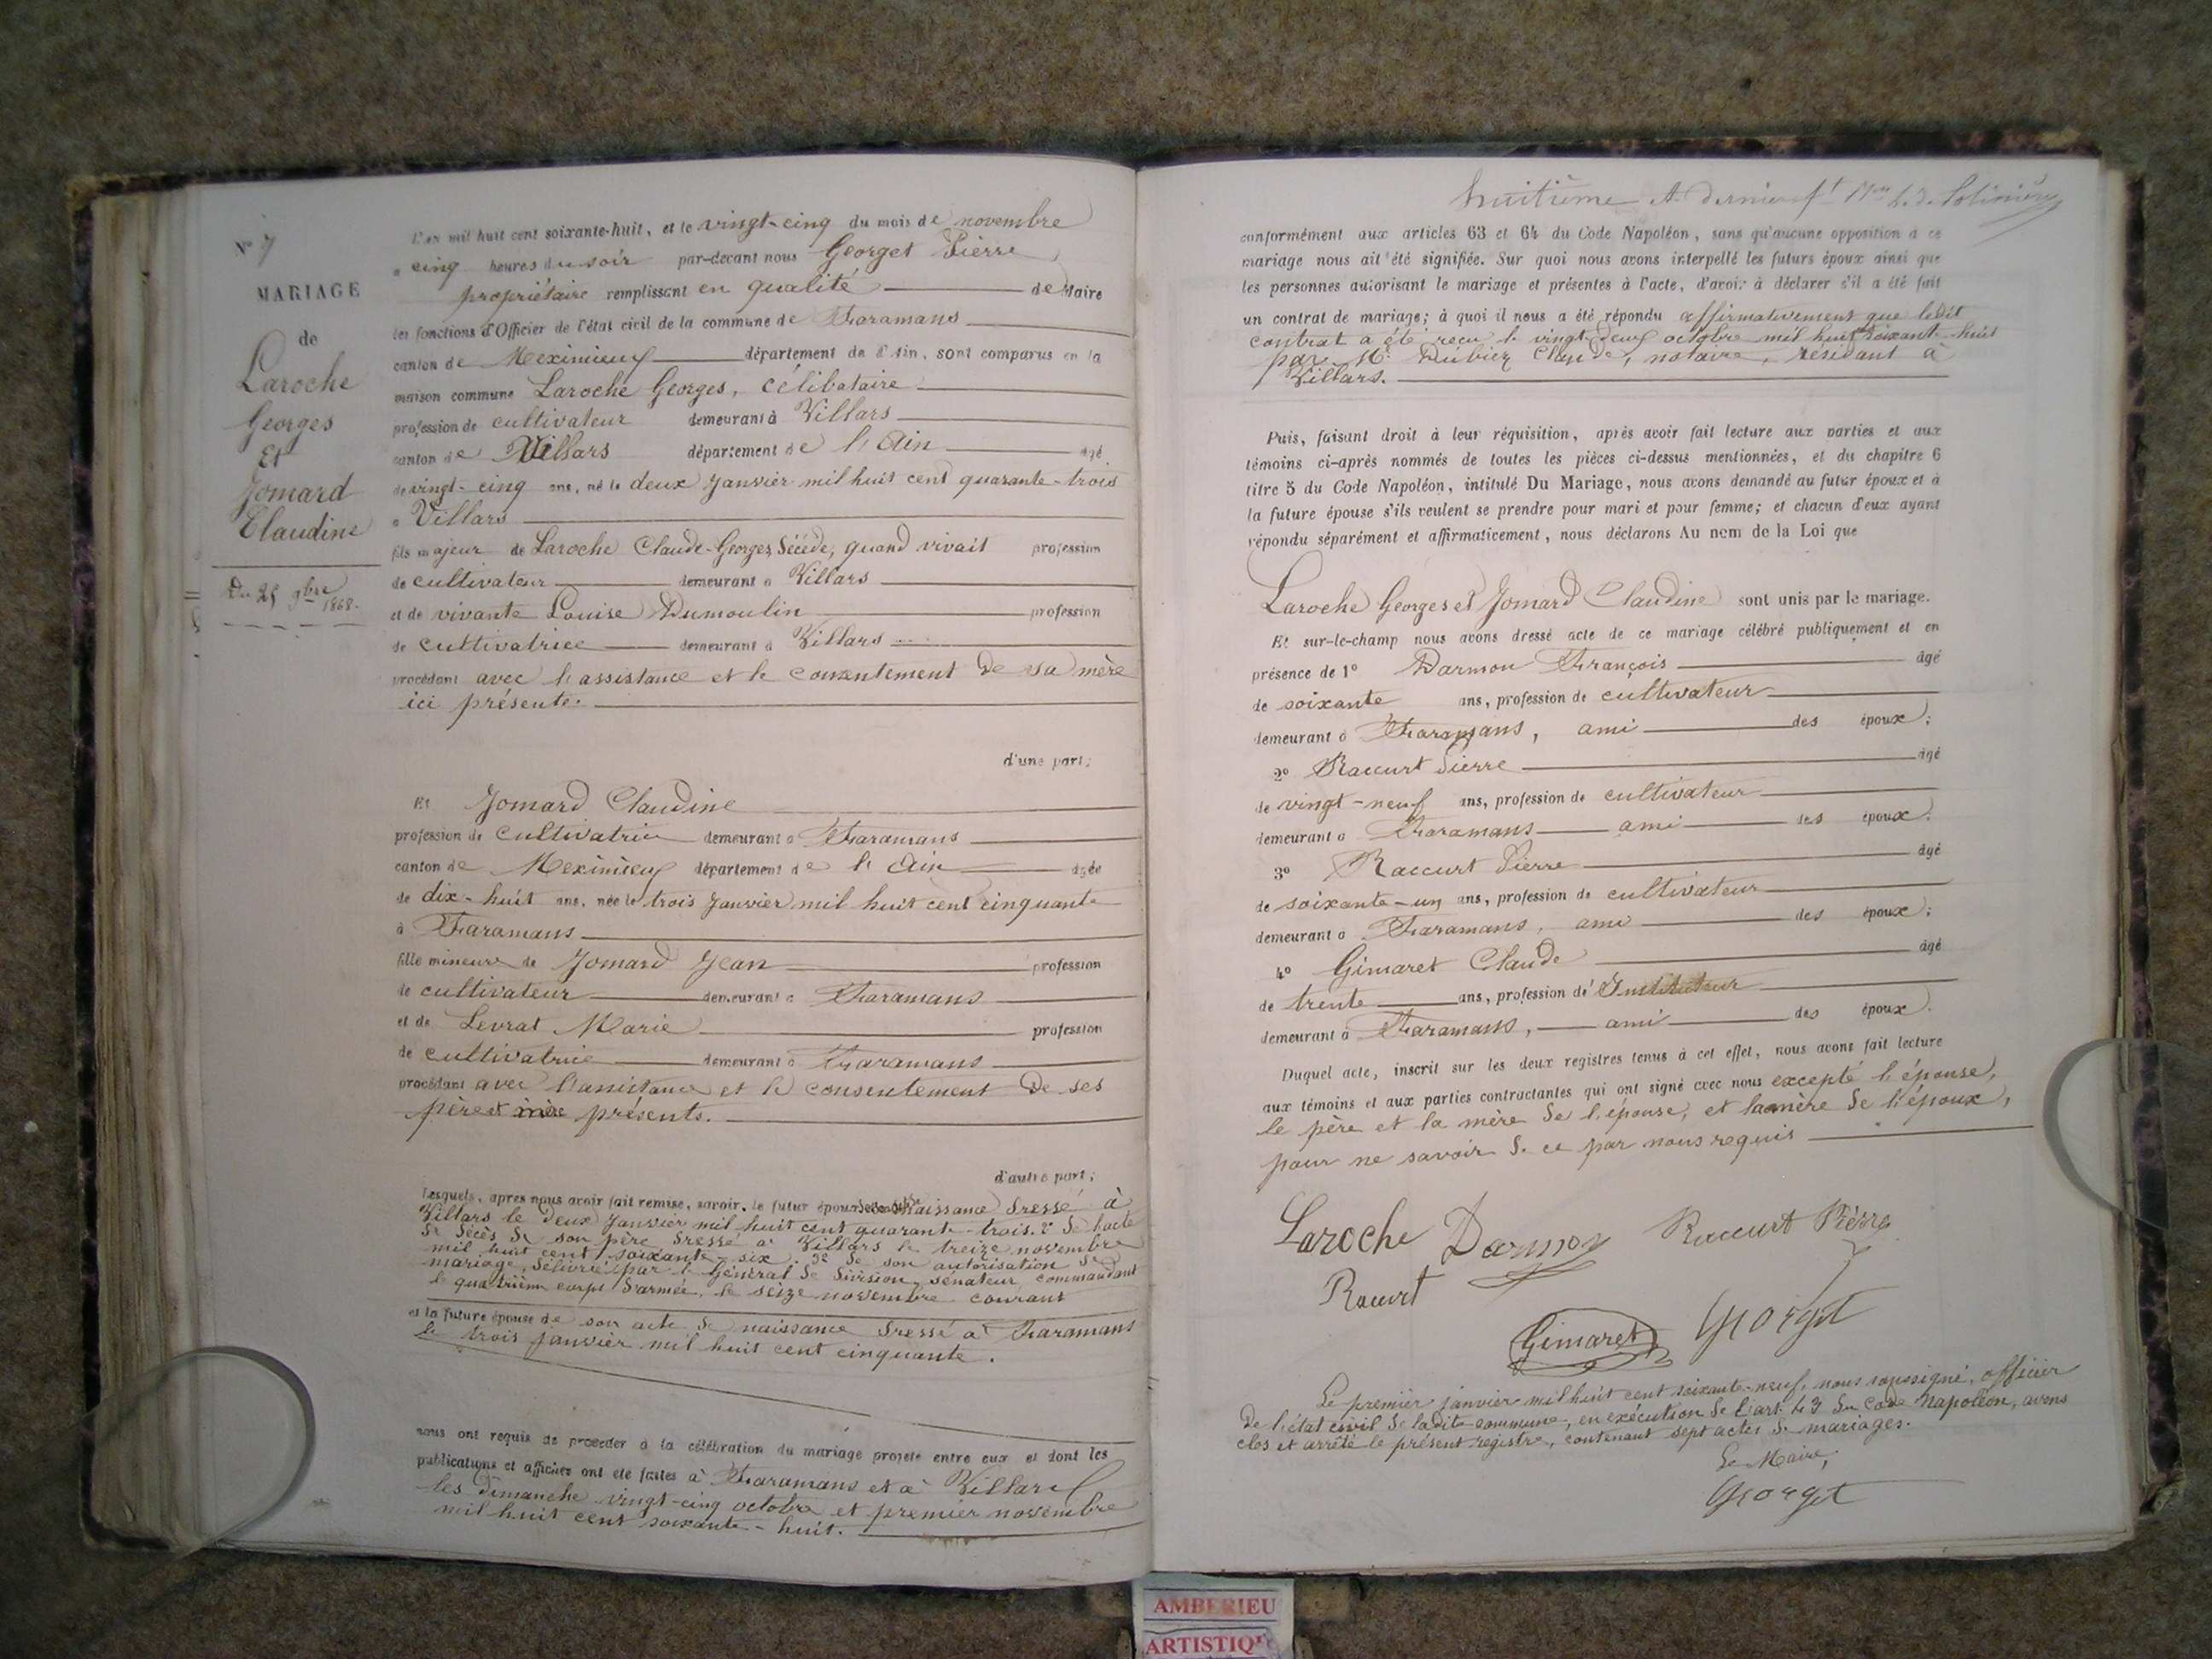 N° 7
MARIAGE
de
Laroche
Georges
Et
Jomard
Claudine
Du 25 9bre
1868.
L'an mil huit cent soixante-huit, et le vingt-cinq du mois de novembre
à cinq heures du soir par-devant nous Georget Pierre,
propriétaire remplissant en qualité de Maire
les fonctions d'Officier de l'état civil de la commune de Faramans
canton de Meximieux département de l'Ain, sont comparus en la
maison commune Laroche Georges, célibataire
profession de cultivateur demeurant à Villars
canton de Villars département de l'Ain âgé
de vingt-cinq ans, né le deux Janvier mil huit cent quarante-trois
à Villars
fils majeur de Laroche Claude-Georges décédé, quand vivait profession
de cultivateur demeurant à Villars
et de vivante Louise Dumoulin profession
de cultivatrice demeurant à Villars
procédant avec l'assistance et le consentement de sa mère
ici présente.
d'une part;
Et Jomard Claudine
profession de cultivatrice demeurant à Faramans
canton de Meximieux département de l'Ain âgée
de dix-huit ans, née le trois Janvier mil huit cent cinquante
à Faramans
fille mineure de Jomard Jean profession
de cultivateur demeurant à Faramans
et de Levrat Marie profession
de cultivatrice demeurant à Faramans
procédant avec l'assistance et le consentement de ses
père et mère présents.
d'autre part;
Lesquels, après nous avoir fait remise, savoir, le futur époux de son acte de naissance dressé à
Villars le deux Janvier mil huit cent quarante-trois. 2° de l'acte
de décès de son père dressé à Villars le treize novembre
mil huit cent soixante-six. 3° de son autorisation de
mariage, délivrée par le Général de division, sénateur commandant
le quatrième corps d'armée, le seize novembre courant
et la future épouse de son acte de naissance dressé à Faramans
le trois janvier mil huit cent cinquante.
nous ont requis de procéder à la célébration du mariage projeté entre eux et dont les
publications et affiches ont été faites à Faramans et à Villars
les dimanche vingt-cinq octobre et premier novembre
mil huit cent soixante-huit.
huitième et dernier
conformément aux articles 63 et 64 du Code Napoléon, sans qu'aucune opposition à ce
mariage nous ait été signifiée. Sur quoi nous avons interpellé les futurs époux ainsi que
les personnes autorisant le mariage et présentes à l'acte, d'avoir à déclarer s'il a été fait
un contrat de mariage; à quoi il nous a été répondu affirmativement que ledit
contrat a été reçu le vingt-deux octobre mil huit soixante-huit
par Me Dubiez Claude, notaire, résidant à
Villars.
Puis, faisant droit à leur réquisition, après avoir fait lecture aux parties et aux
témoins ci-après nommés de toutes les pièces ci-dessus mentionnées, et du chapitre 6
titre 5 du Code Napoléon, intitulé Du Mariage, nous avons demandé au futur époux et à
la future épouse s'ils veulent se prendre pour mari et pour femme; et chacun d'eux ayant
répondu séparément et affirmativement, nous déclarons Au nom de la Loi que
Laroche Georges et Jomard Claudine sont unis par le mariage.
Et sur-le-champ nous avons dressé acte de ce mariage célébré publiquement et en
présence de 1° Darmon François âgé
de soixante ans, profession de cultivateur
demeurant à Faramans, ami des époux;
2° Raccurt Pierre âgé
de vingt-neuf ans, profession de cultivateur
demeurant à Faramans ami des époux;
3° Raccurt Pierre âgé
de soixante-un ans, profession de cultivateur
demeurant à Faramans, ami des époux;
4° Gimaret Claude âgé
de trente ans, profession de Instituteur
demeurant à Faramans, ami des époux.
Duquel acte, inscrit sur les deux registres tenus à cet effet, nous avons fait lecture
aux témoins et aux parties contractantes qui ont signé avec nous excepté l'épouse,
le père et la mère de l'épouse, et la mère de l'époux,
pour ne savoir de ce par nous requis
Laroche Darmon Raccurt Pierre
Racurt
Gimaret Georget
Le premier janvier mil huit cent soixante-neuf, nous soussigné, officier
de l'état civil de ladite commune, en exécution de l'art. 43 du Code Napoléon, avons
clos et arrêté le présent registre, contenant sept actes de mariages.
Le Maire,
Georget
AMBERIEU
ARTISTIQUE